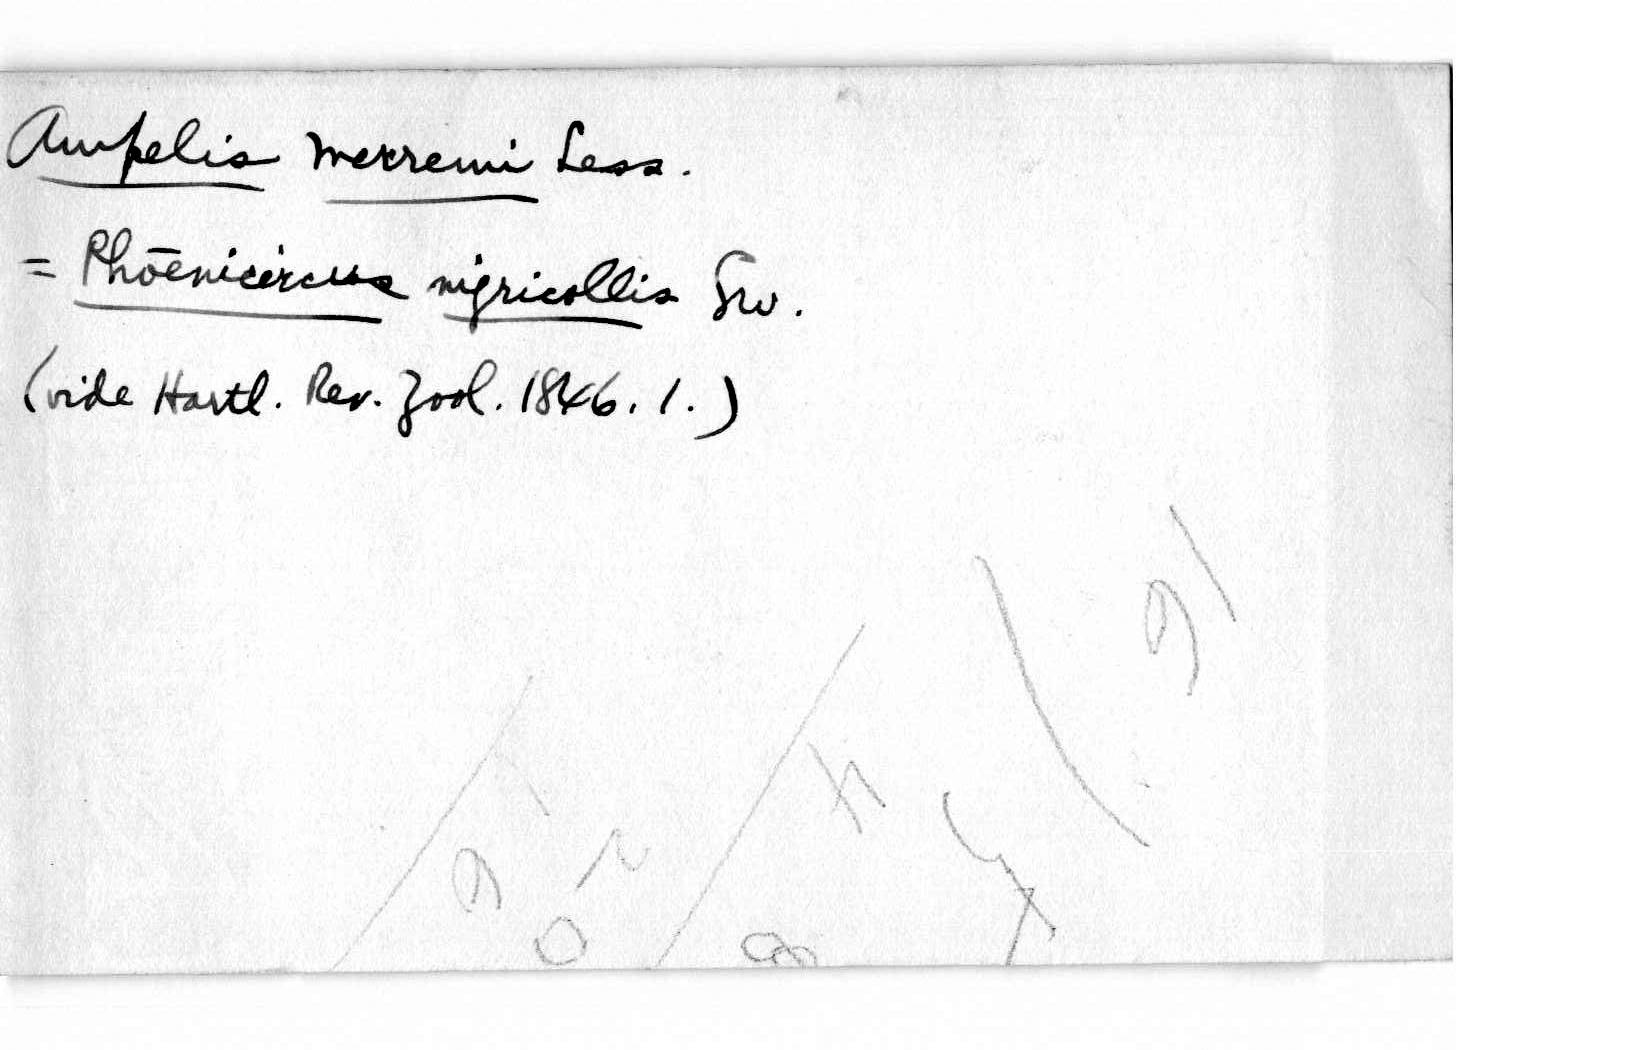 Ampelis merremi Less.
= Phoenicircus nigricollis Sw.
(vide Hartl. Rev. Zool. 1846. 1.)